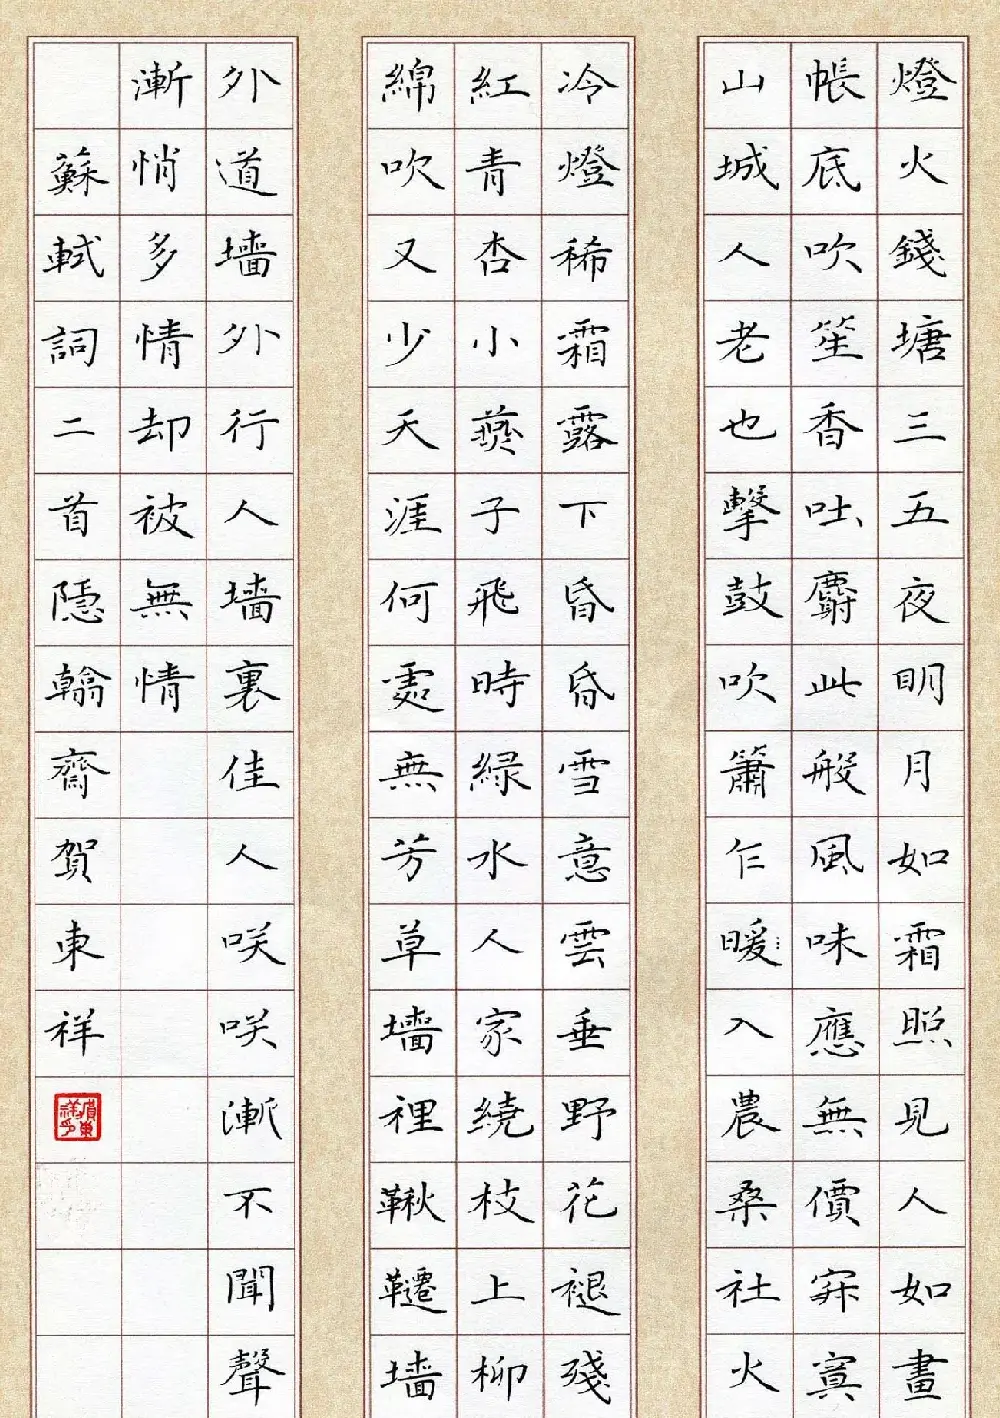 燈火錢塘三五夜明月如霜照見人如畫
帳底吹笙香吐麝此般風味應無價寂寞
山城人老也擊鼓吹簫乍暖入農桑社火
冷燈稀霜露下昏昏雪意雲垂野花褪殘
紅青杏小燕子飛時綠水人家繞枝上柳
綿吹又少天涯何處無芳草墻裡鞦韆墻
外道墻外行人墻裏佳人咲咲漸不聞聲
漸悄多情却被無情
蘇軾詞二首隱翰齋賀東祥
賀東祥印